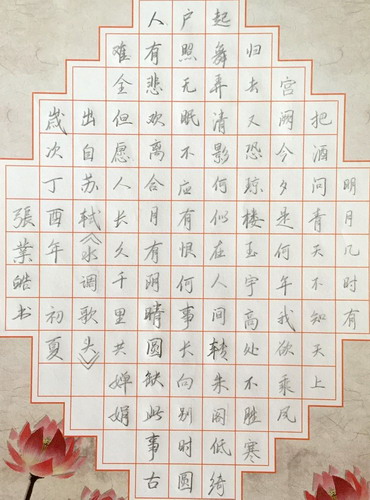 明月几时有
把酒问青天不知天上
宫阙今夕是何年我欲乘风
归去又恐琼楼玉宇高处不胜寒
起舞弄清影何似在人间转朱阁低绮
户照无眠不应有恨何事长向别时圆
人有悲欢离合月有阴晴圆缺此事古
难全但愿人长久千里共婵娟
出自苏轼《水调歌头》
歲次丁酉年初夏
張業皓书